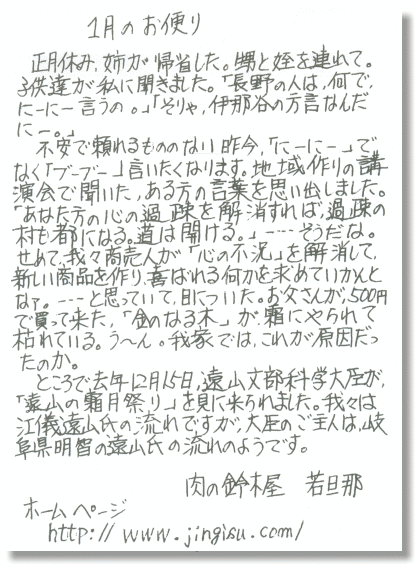 1月のお便り
正月休み,姉が帰省した。甥と姪を連れて。
子供達が私に聞きました。「長野の人は,何で,
にーにー言うの。」「そりゃ,伊那谷の方言なんだ
にー。」
不安で頼れるもののない昨今,「にーにー」で
なく「ブーブー」言いたくなります。地域作りの講
演会で聞いた,ある方の言葉を思い出しました。
「あなた方の心の過疎を解消すれば,過疎の
村も都になる。道は開ける。」-----そうだな。
せめて,我々商売人が「心の不況」を解消して,
新しい商品を作り,喜ばれる何かを求めていかんと
なァ。---と思っていて,目についた。お父さんが,500円
で買って来た,「金のなる木」が霜にやられて
枯れている。う〜ん。我家では,これが原因だっ
たのか。
ところで去年12月15日,遠山文部科学大臣が,
「遠山の霜月祭り」を見に来られました。我々は
江儀遠山氏の流れですが,大臣のご主人は,岐
阜県明智の遠山氏の流れのようです。
肉の鈴木屋 若旦那
ホームページ
http://www.jingisu.com/